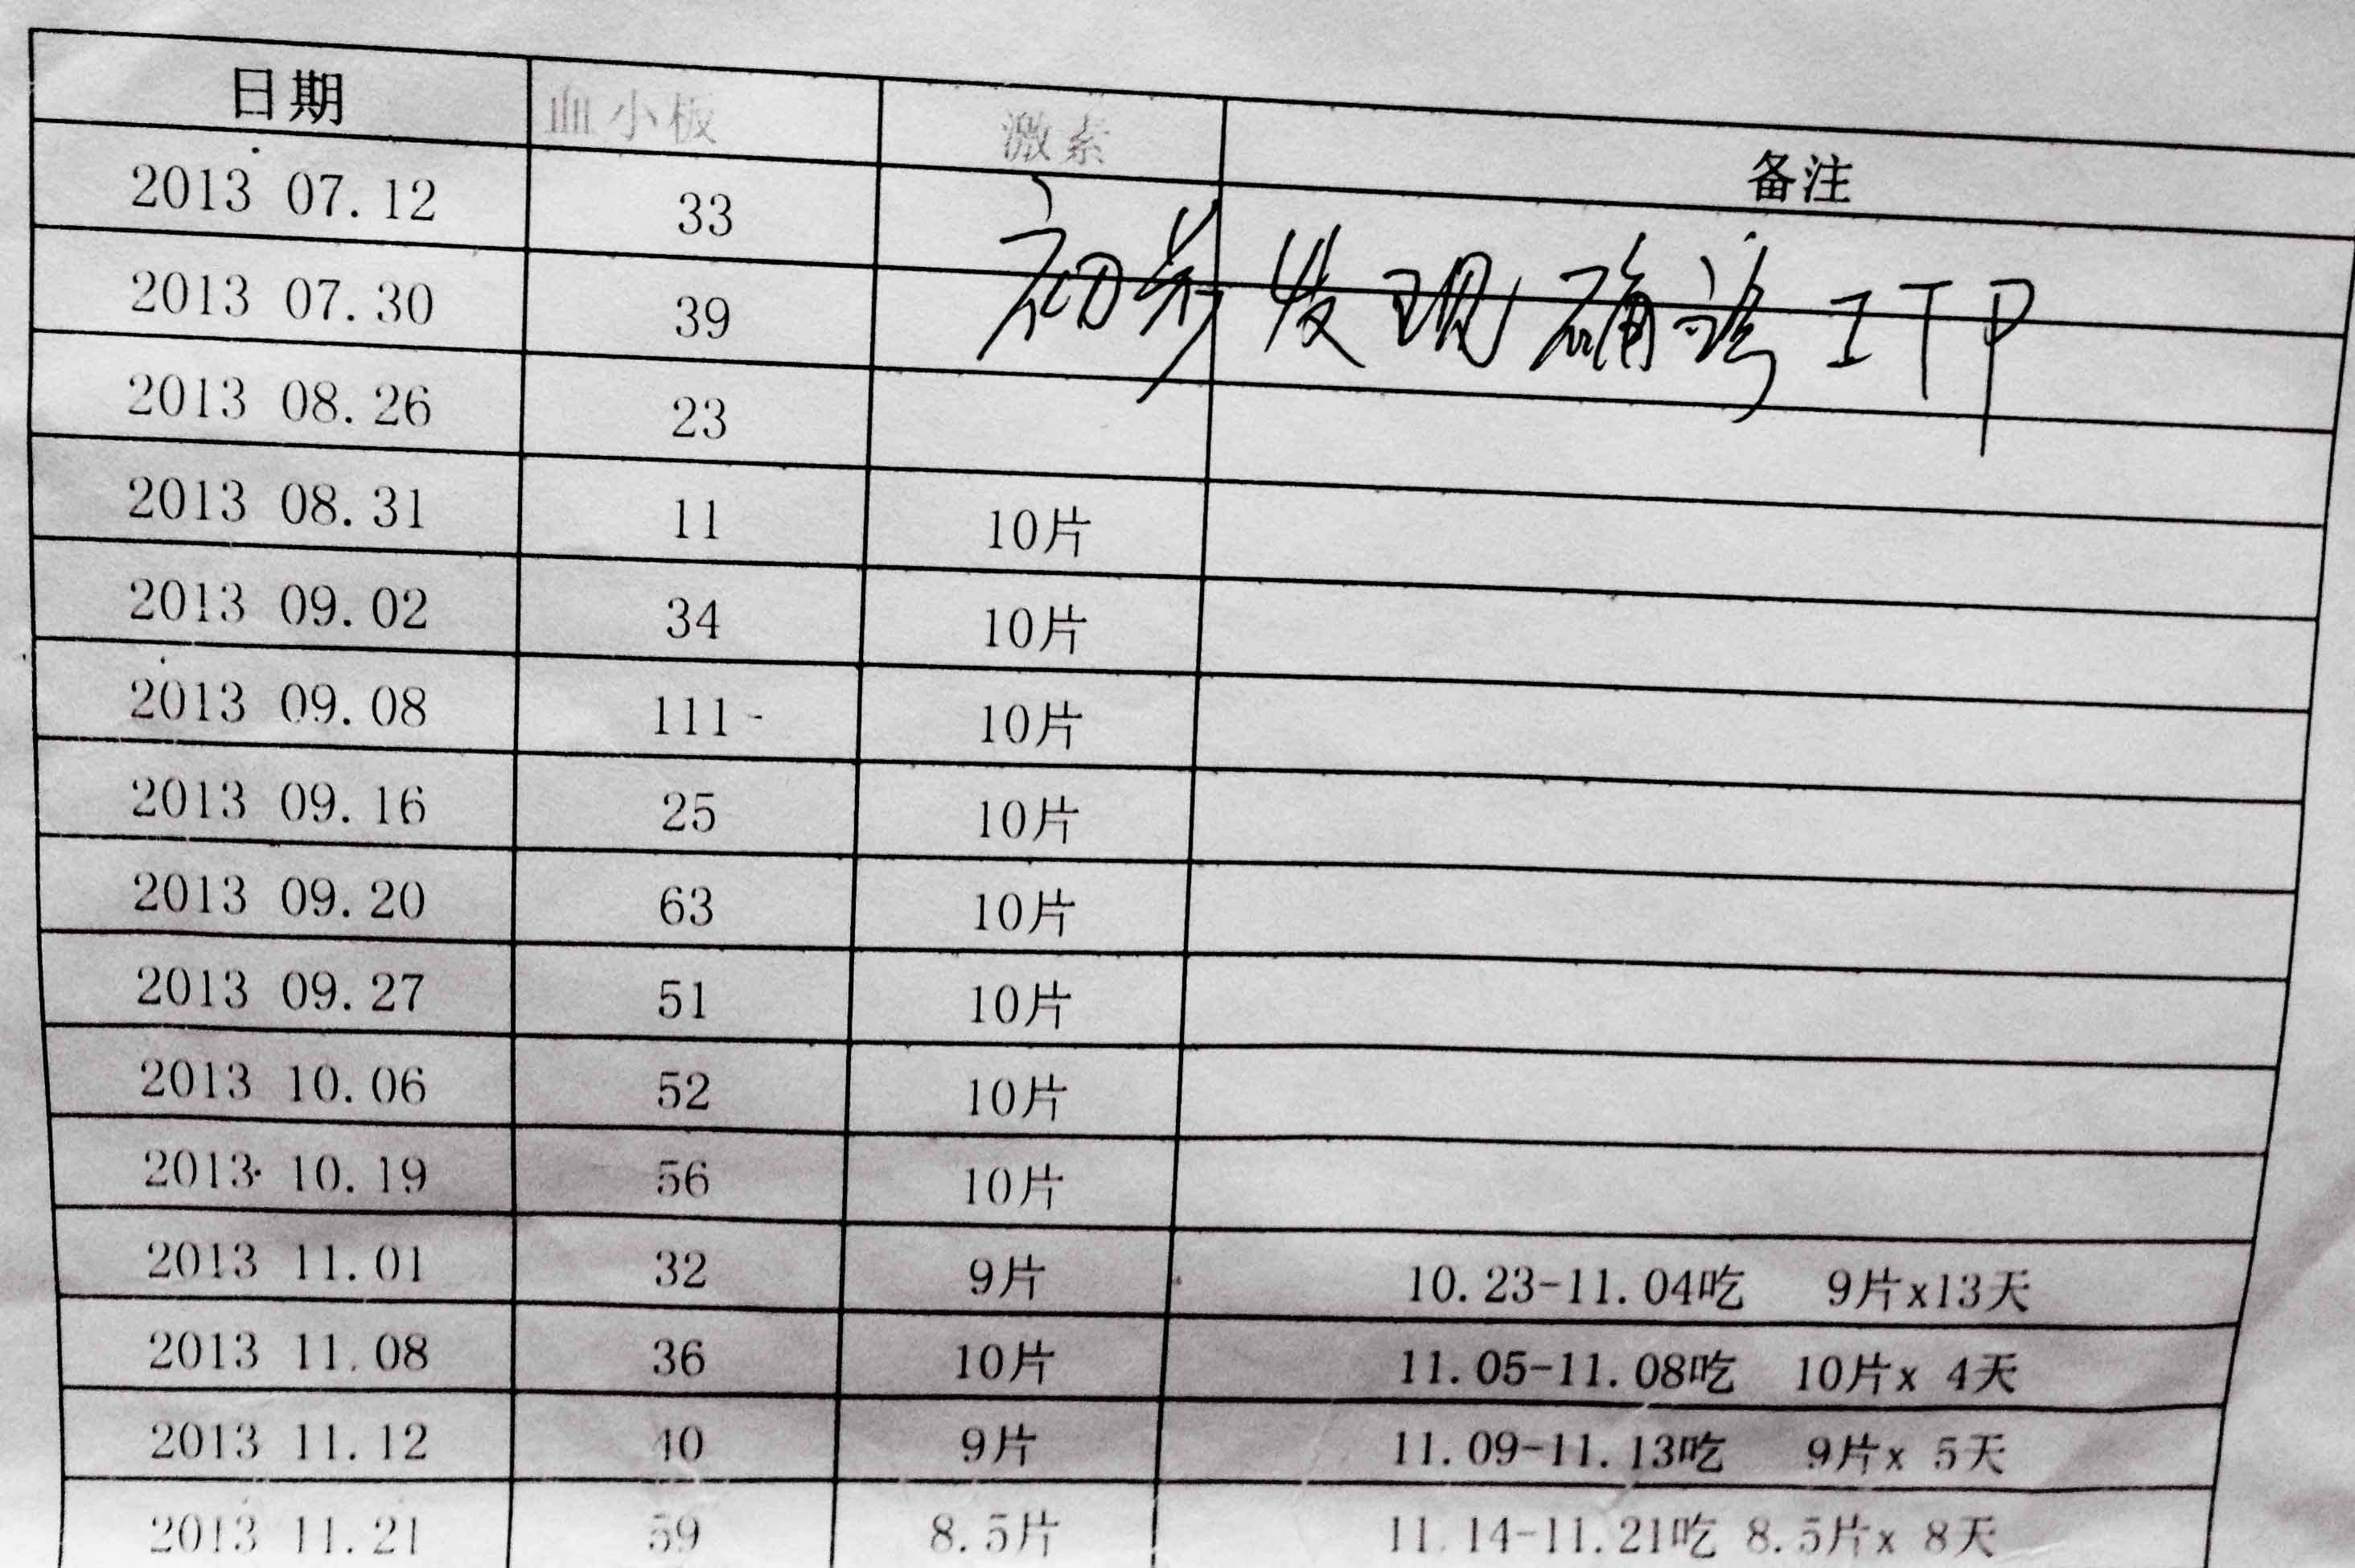 日期 血小板 激素 备注
2013 07.12 33
初步发现确诊ITP
2013 07.30 39
2013 08.26 23
2013 08.31 11 10片
2013 09.02 34 10片
2013 09.08 111 10片
2013 09.16 25 10片
2013 09.20 63 10片
2013 09.27 51 10片
2013 10.06 52 10片
2013 10.19 56 10片
2013 11.01 32 9片 10.23-11.04吃 9片x13天
2013 11.08 36 10片 11.05-11.08吃 10片x 4天
2013 11.12 40 9片 11.09-11.13吃 9片x 5天
2013 11.21 59 8.5片 11.14-11.21吃 8.5片x 8天